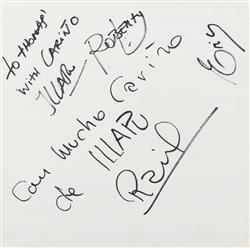 to THOMAS
WITH CARIÑO
ILLAPU
ROBERTO
Eric
Con Mucho Cariño
de ILLAPU
Raul